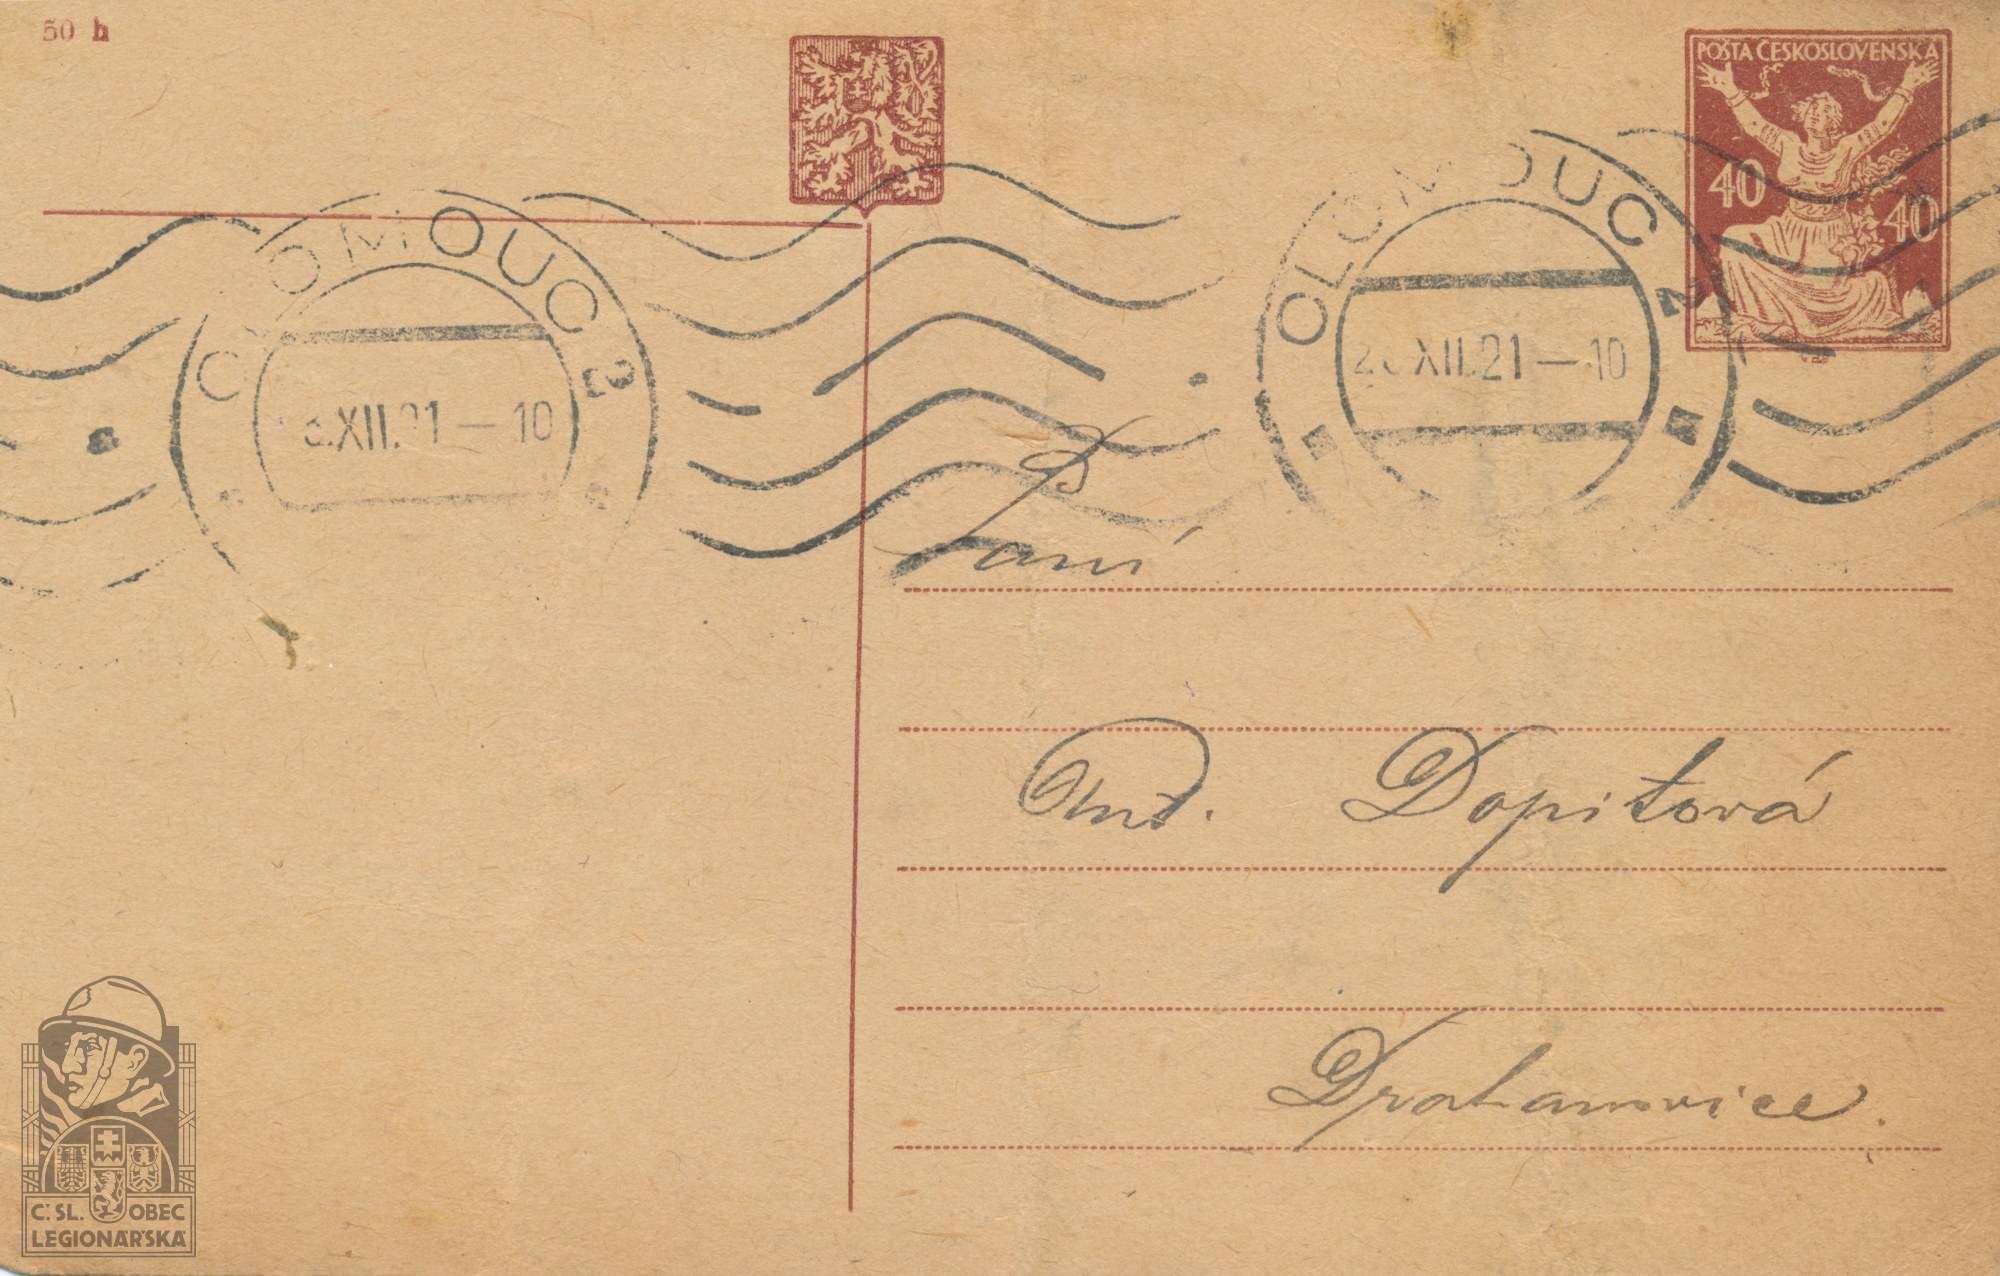 50 h
POŠTA ČESKOSLOVENSKÁ
40 40
OLOMOUC 2
XII.21 — 10
OLOMOUC 2
XII.21 — 10
Paní
And. Dopitová
Drahanovice.
Č. SL. OBEC
LEGIONÁŘSKÁ